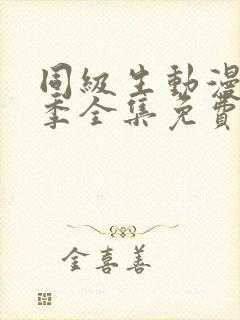 同級生動漫
季全集免費
金喜善